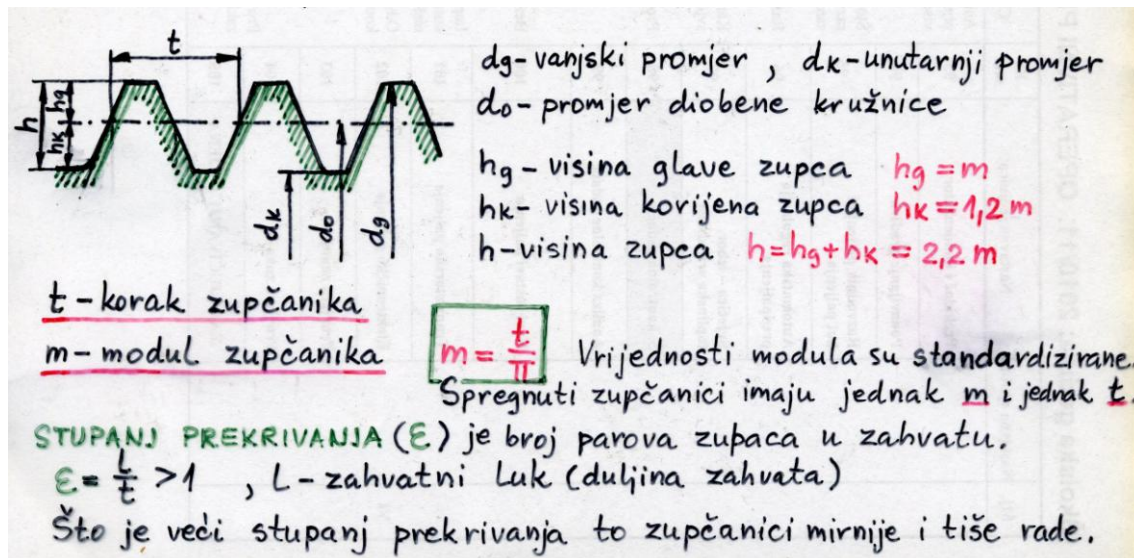 t
h
hg
hk
dk
do
dg
dg-vanjski promjer , dk-unutarnji promjer
do-promjer diobene kružnice
hg - visina glave zupca hg = m
hk- visina korijena zupca hk = 1,2 m
h-visina zupca h=hg+hk = 2,2 m
t - korak zupčanika
m - modul zupčanika
m = t/π Vrijednosti modula su standardizirane.
Spregnuti zupčanici imaju jednak m i jednak t.
STUPANJ PREKRIVANJA (ε) je broj parova zubaca u zahvatu.
ε = l/t >1 , L - zahvatni luk (duljina zahvata)
Što je veći stupanj prekrivanja to zupčanici mirnije i tiše rade.